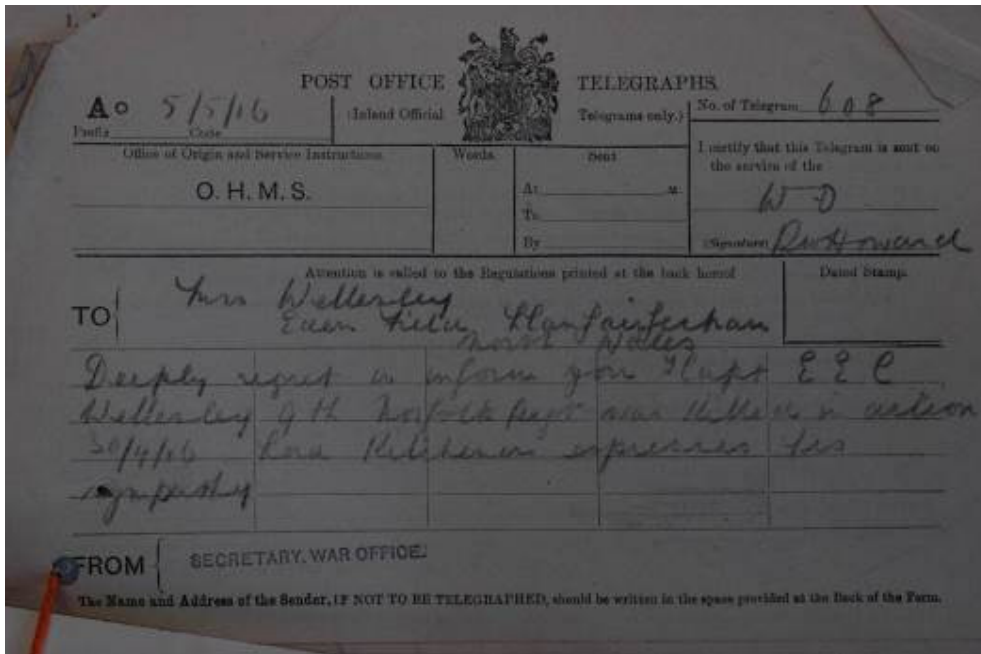 POST OFFICE TELEGRAPHS.
A o 5/5/16
(Inland Official Telegrams only.)
No. of Telegram 608
Prefix Code
Office of Origin and Service Instructions.
Words
Sent
I certify that this Telegram is sent on
the service of the
O. H. M. S.
At M.
W O
To
By
(Signature)
Howard
Attention is called to the Regulations printed at the back hereof
Dated Stamp.
TO
Mrs Wellesley
Llanfairfechan
North Wales
Deeply regret to inform you Capt E E C
Wellesley 9th Norfolk Regt was killed in action
30/4/16 Lord Kitchener expresses his
sympathy
FROM
SECRETARY, WAR OFFICE.
The Name and Address of the Sender, IF NOT TO BE TELEGRAPHED, should be written in the space provided at the Back of the Form.